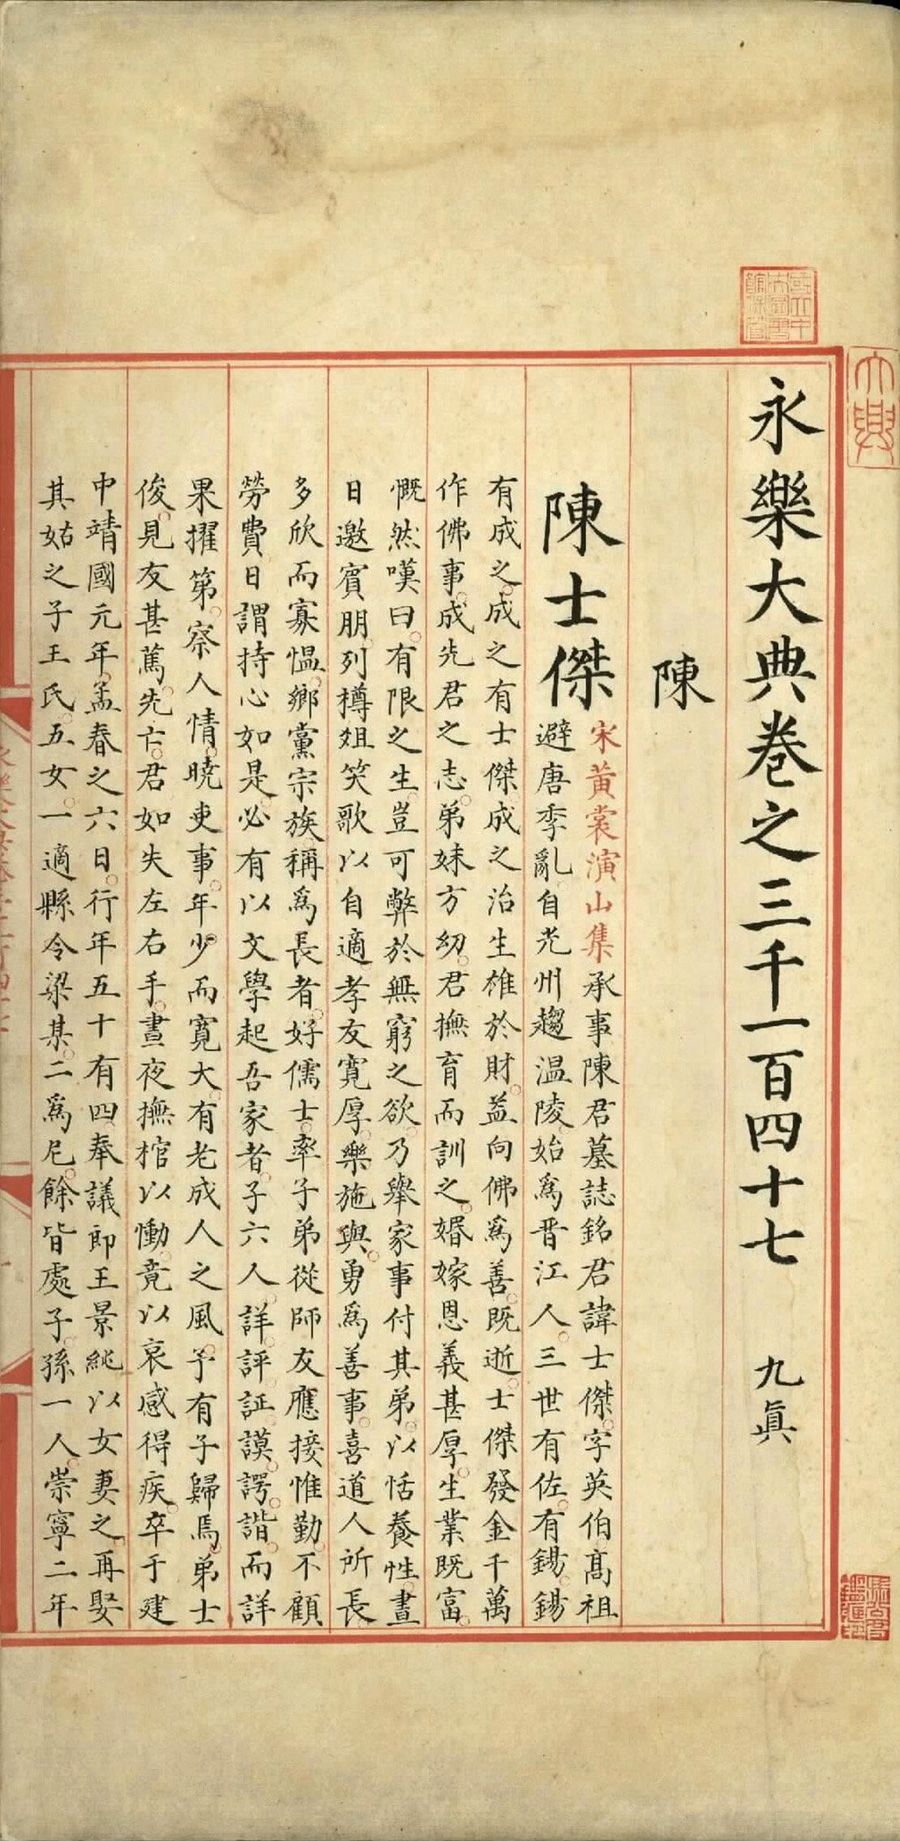 永樂大典卷之三千一百四十七 九真
陳
陳士傑
宋黃裳演山集承事陳君墓誌銘君諱士傑字英伯高祖
避唐季亂自光州趨温陵始爲晋江人三世有佐有錫錫
有成之成之有士傑成之治生雄於財益向佛爲善既逝士傑發金千萬
作佛事成先君之志弟妹方幼君撫育而訓之婚嫁恩義甚厚生業既富
慨然嘆曰有限之生豈可弊於無窮之欲乃舉家事付其弟以恬養性晝
日邀賓朋列樽俎笑歌以自適孝友寬厚樂施與勇爲善事喜道人所長
多欣而寡愠鄉黨宗族稱爲長者好儒士率子弟從師友應接惟勤不顧
勞費日謂持心如是必有以文學起吾家者子六人詳評証謨諤諧而詳
果擢第察人情曉吏事年少而寬大有老成人之風予有子歸焉弟士
俊見友甚篤先亡君如失左右手晝夜撫棺以慟竟以哀感得疾卒于建
中靖國元年孟春之六日行年五十有四奉議郎王景純以女妻之再娶
其姑之子王氏五女一適縣令梁某二爲尼餘皆處子孫一人崇寧二年